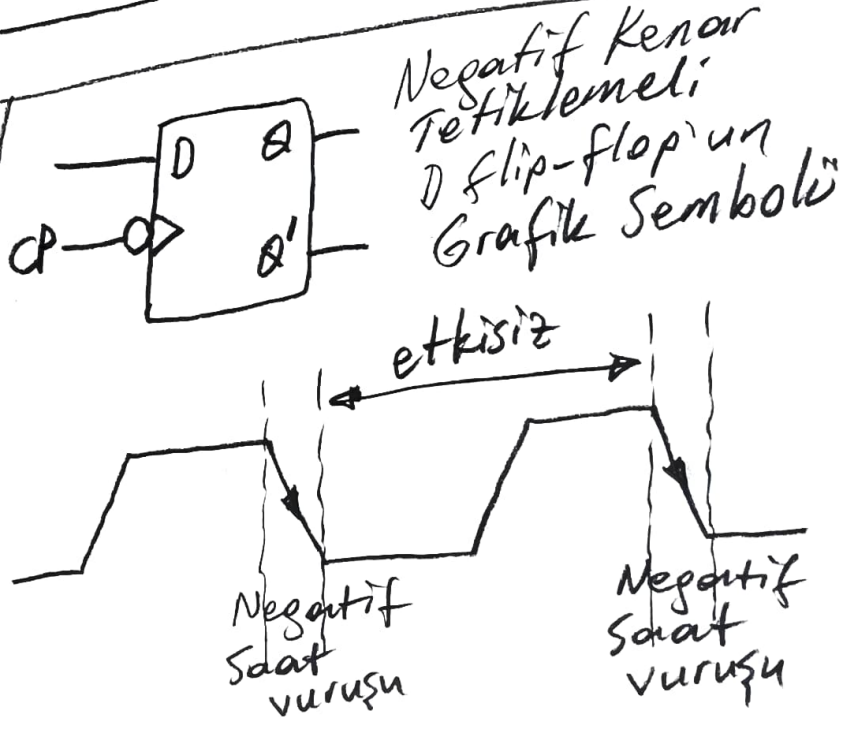 Negatif Kenar
Tetiklemeli
D flip-flop'un
Grafik Sembolü
D Q
CP
Q'
etkisiz
Negatif
Saat
vuruşu
Negatif
Saat
vuruşu